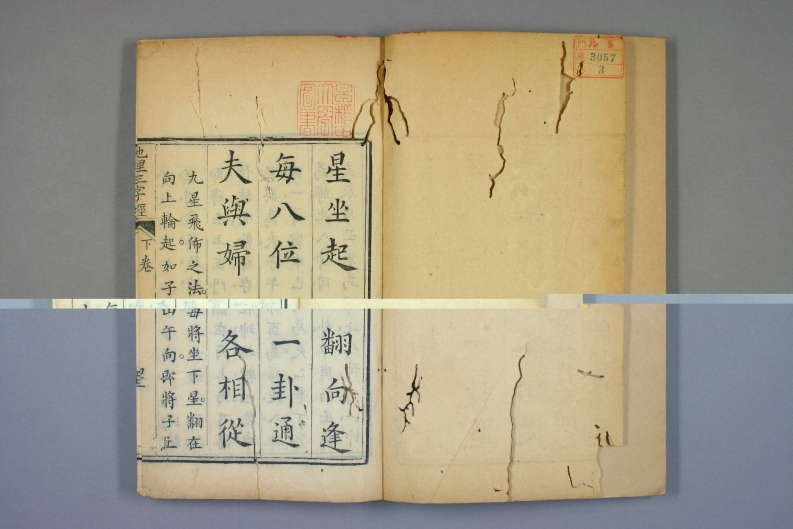 星坐起 翻向逢
每八位 一卦通
夫與婦 各相從
九星飛佈之法。每將坐下星。翻在
向上輪起。如子山午向。即將子上
地理三字經
下卷
3057
3